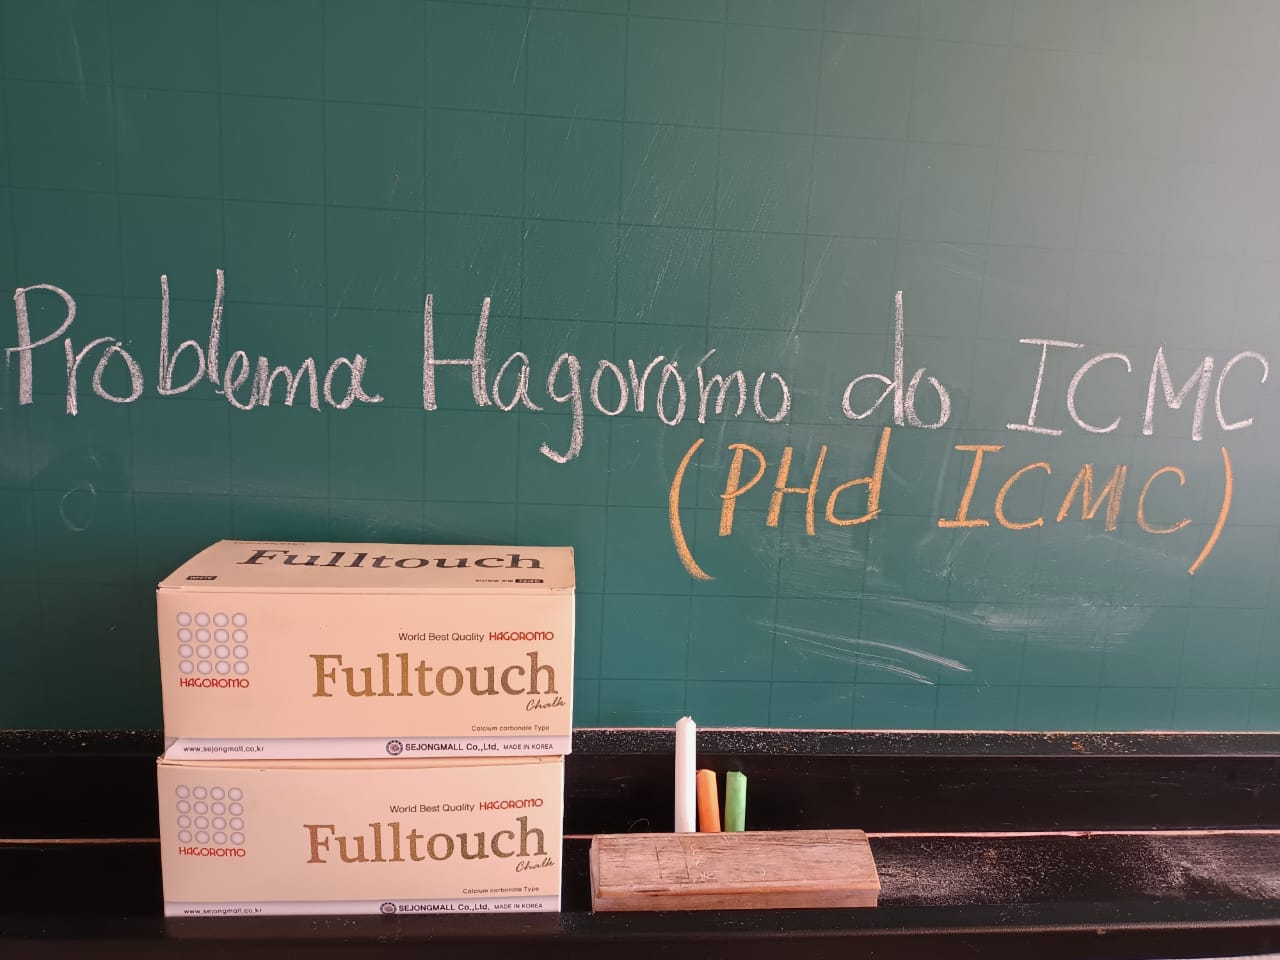 Problema Hagoromo do ICMC
(PHd ICMC)
Fulltouch
WHITE
HAGOROMO
World Best Quality HAGOROMO
Fulltouch
Chalk
Calcium carbonate Type
www.sejongmall.co.kr
SEJONGMALL Co.,Ltd. MADE IN KOREA
HAGOROMO
World Best Quality HAGOROMO
Fulltouch
Chalk
Calcium carbonate Type
www.sejongmall.co.kr
SEJONGMALL Co.,Ltd. MADE IN KOREA